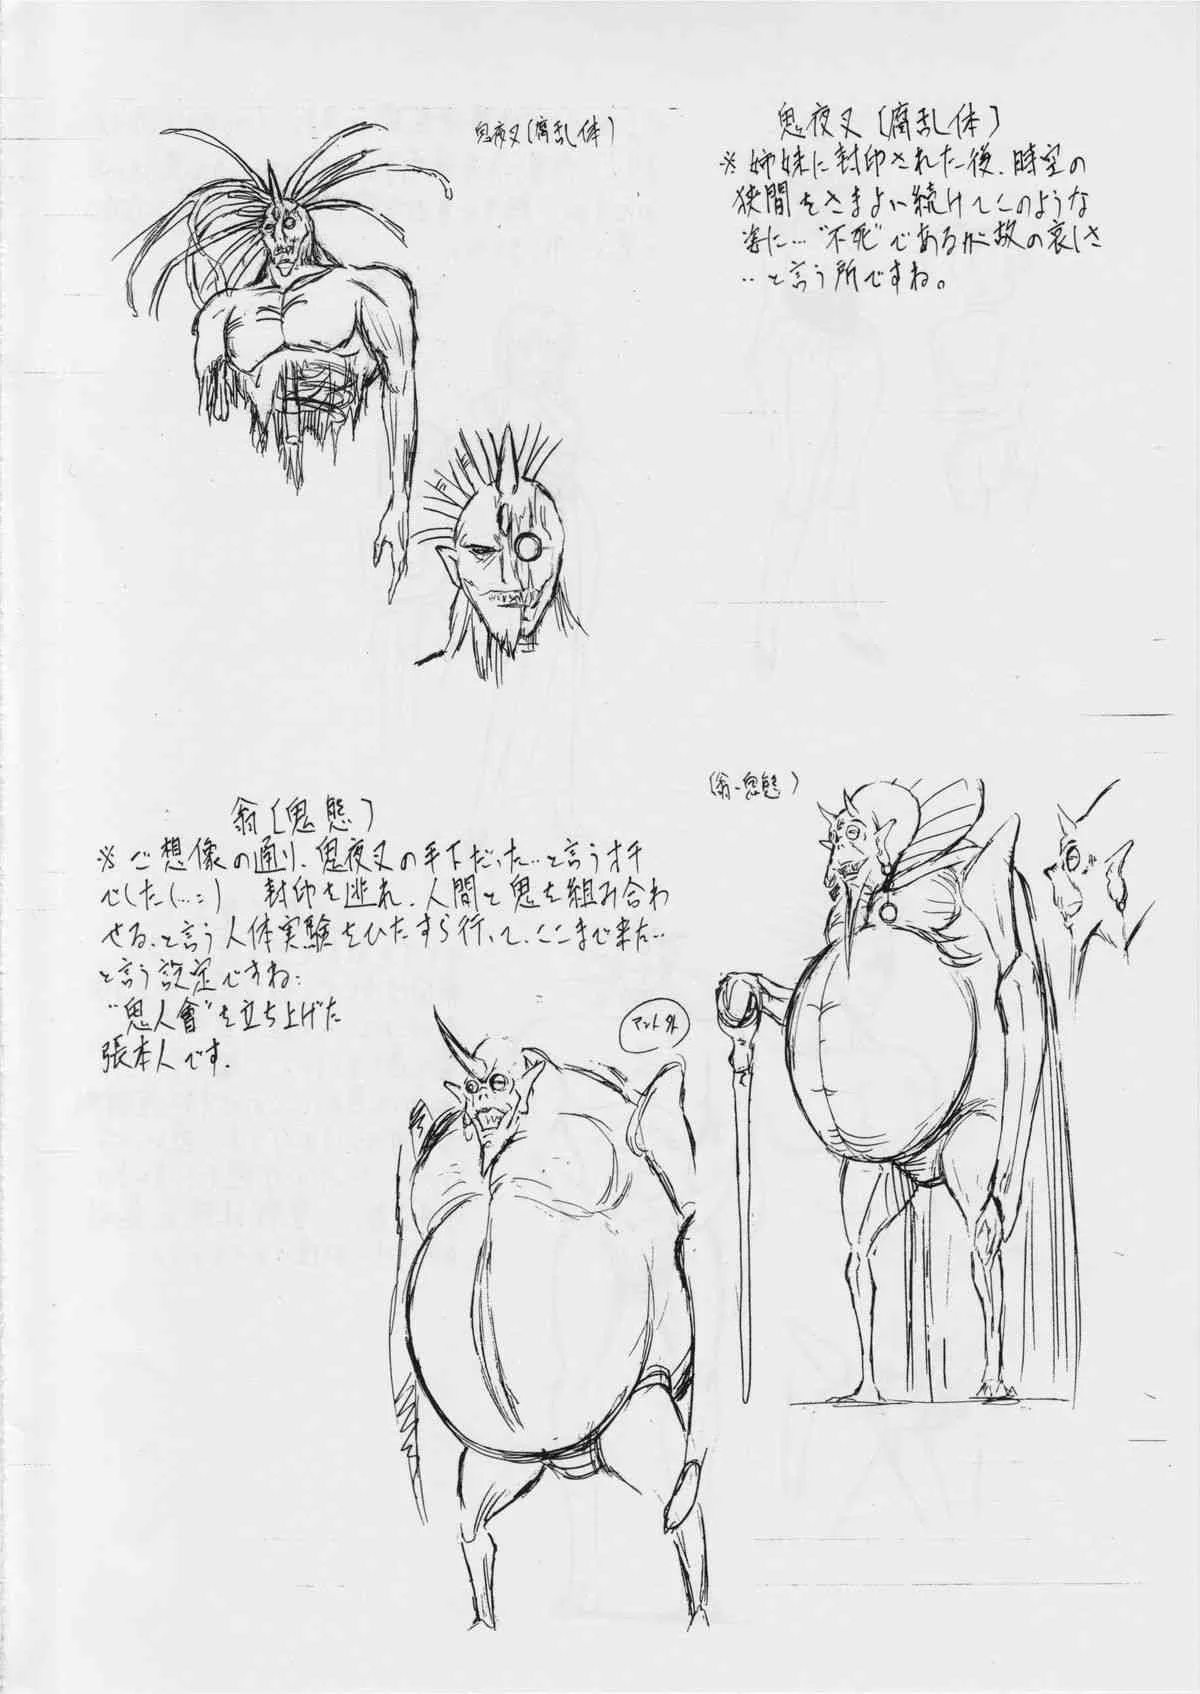 鬼夜叉〔腐乱体〕
鬼夜叉〔腐乱体〕
※姉妹に封印された後、時空の
狭間をさまよい続けてこのような
姿に…“不死”であるが故の哀しさ
…と言う所ですね。
〔翁・鬼態〕
翁〔鬼態〕
※ご想像の通り、鬼夜叉の手下だった…と言うオチ
でした(…:) 封印を逃れ、人間と鬼を組み合わ
せる、と言う人体実験をひたすら行って、ここまで来た…
と言う設定ですね:
“鬼人會”を立ち上げた
張本人です.
マント外